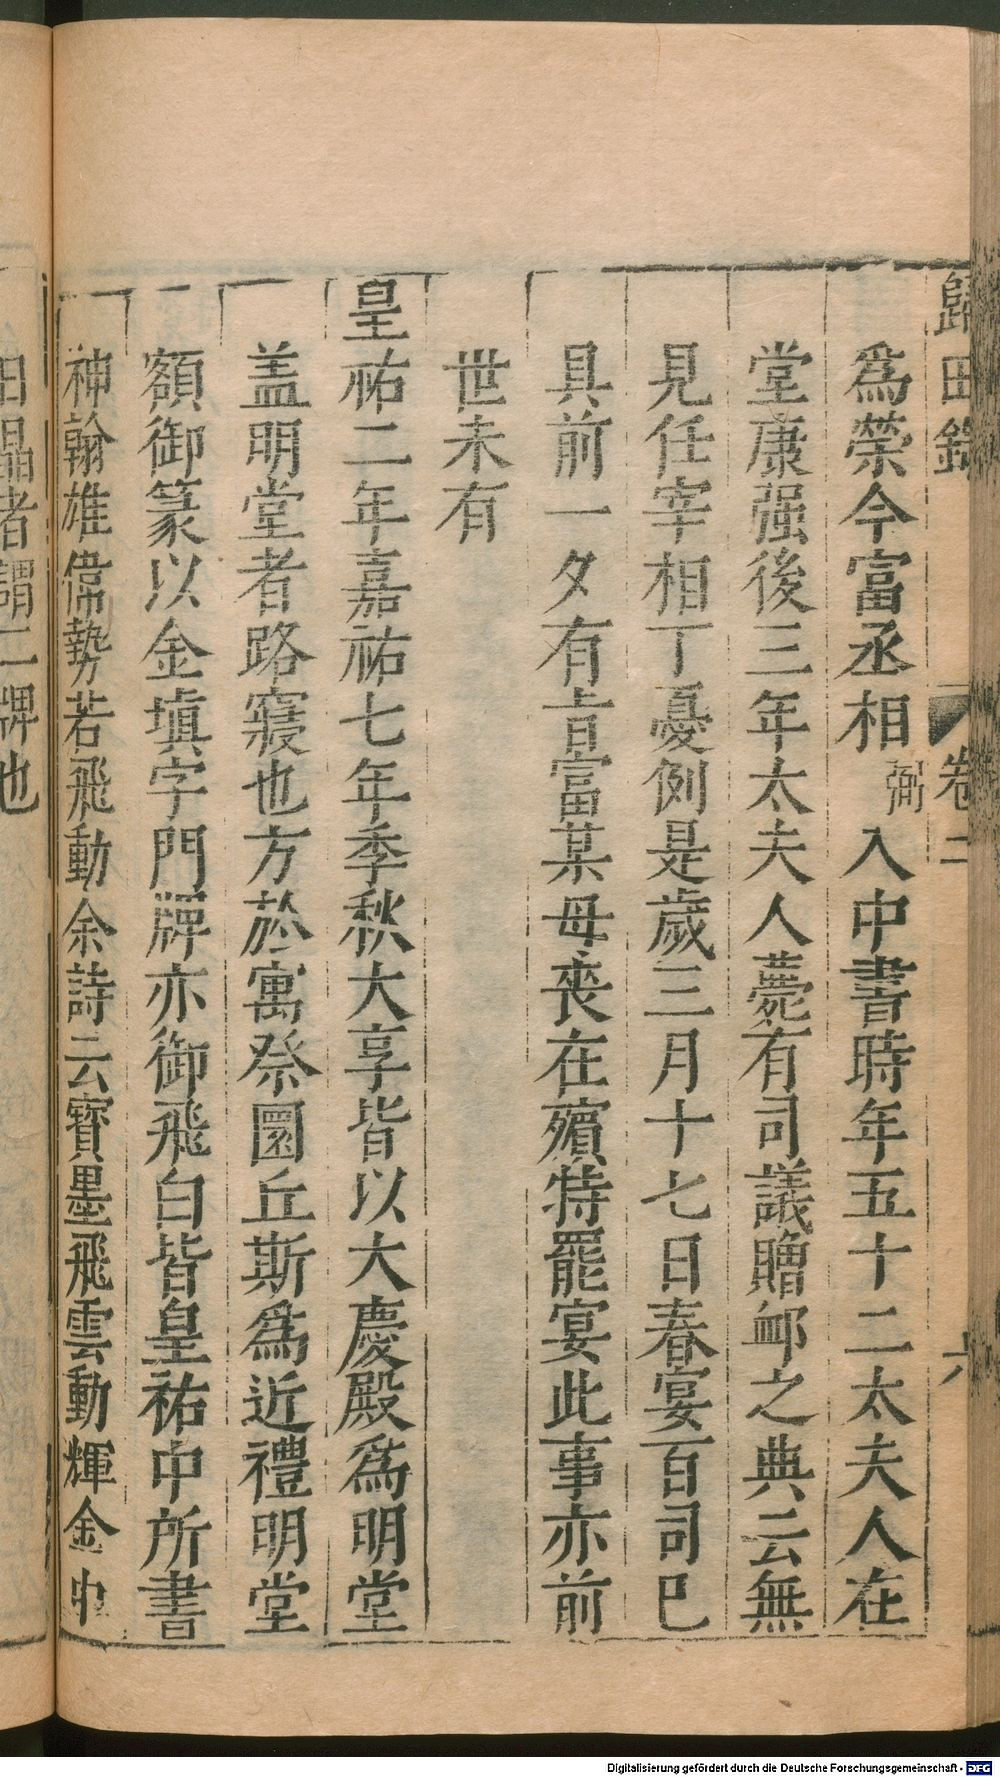 歸田錄 卷二 六
爲榮今富丞相弼入中書時年五十二太夫人在
堂康强後三年太夫人薨有司議贈䘏之典云無
見任宰相丁憂例是歲三月十七日春宴百司巳
具前一夕有旨富某母喪在殯特罷宴此事亦前
世未有
皇祐二年嘉祐七年季秋大享皆以大慶殿爲明堂
盖明堂者路寢也方於寓祭圜丘斯爲近禮明堂
額御篆以金塡字門牌亦御飛白皆皇祐中所書
神翰雄偉勢若飛動余詩云寶墨飛雲動輝金中
日晶者謂二牌也
Digitalisierung gefördert durch die Deutsche Forschungsgemeinschaft - DFG